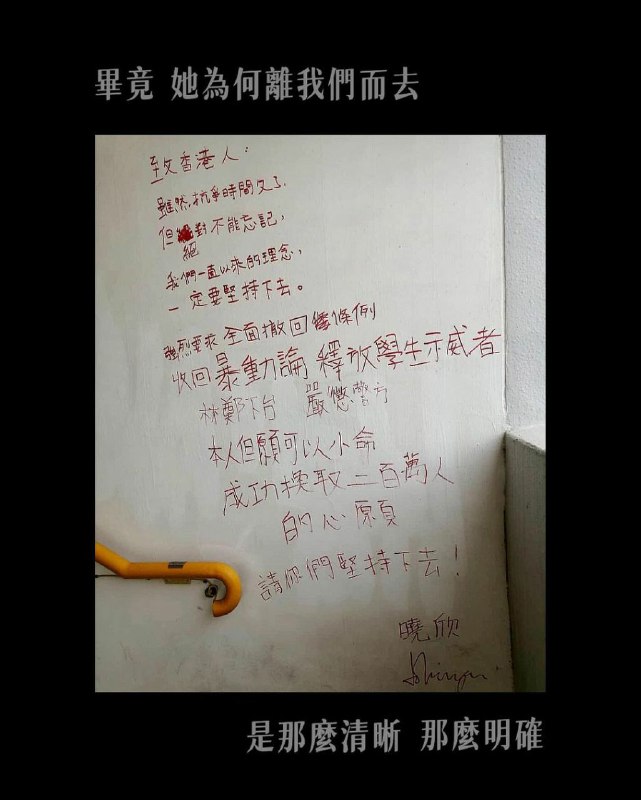 畢竟 她為何離我們而去
致香港人：
雖然抗爭時間久了，
但絕對不能忘記，
我們一直以來的理念，
一定要堅持下去。
強烈要求 全面撤回條例
收回暴動論 釋放學生示威者
林鄭下台 嚴懲警方
本人但願可以小命
成功換取二百萬人
的心願
請你們堅持下去！
曉欣
是那麼清晰 那麼明確